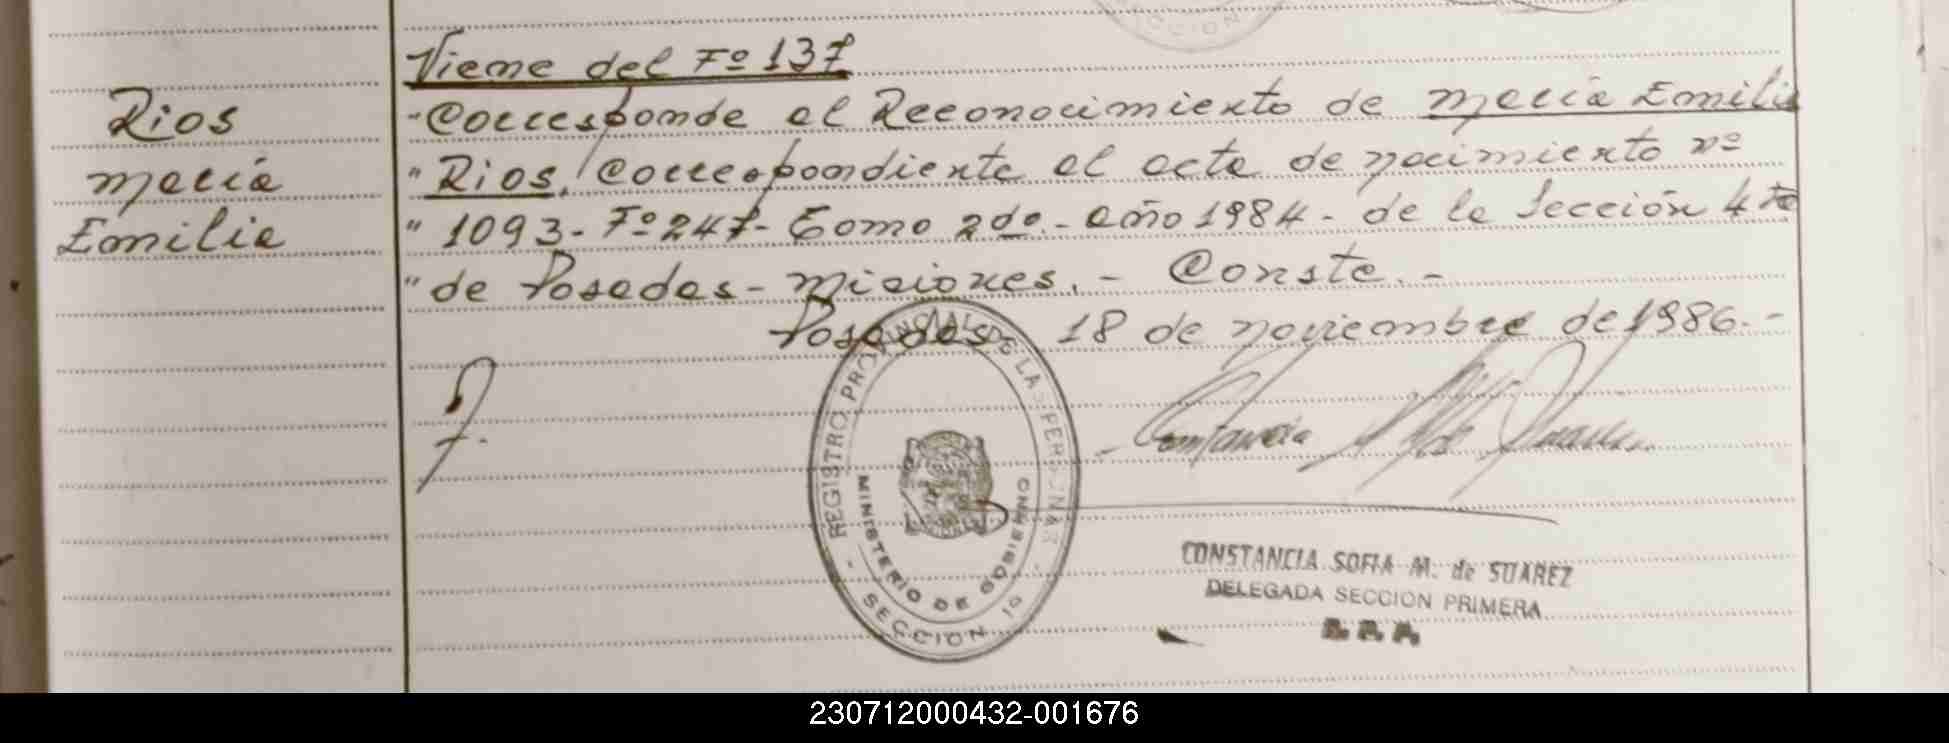 CCION
Viene del Fº 137
Rios
María
Emilia
"Corresponde al Reconocimiento de María Emilia
"Rios, Correspondiente al acta de nacimiento nº
" 1093- Fº 247- Tomo 2do.- año 1984 - de la Sección 4ta
" de Posadas - Misiones. - Conste. -
Posadas 18 de noviembre de 1986. -
REGISTRO PROVINCIAL DE LAS PERSONAS
MINISTERIO DE GOBIERNO
- SECCION 1º -
CONSTANCIA SOFIA M. de SUAREZ
DELEGADA SECCION PRIMERA
230712000432-001676